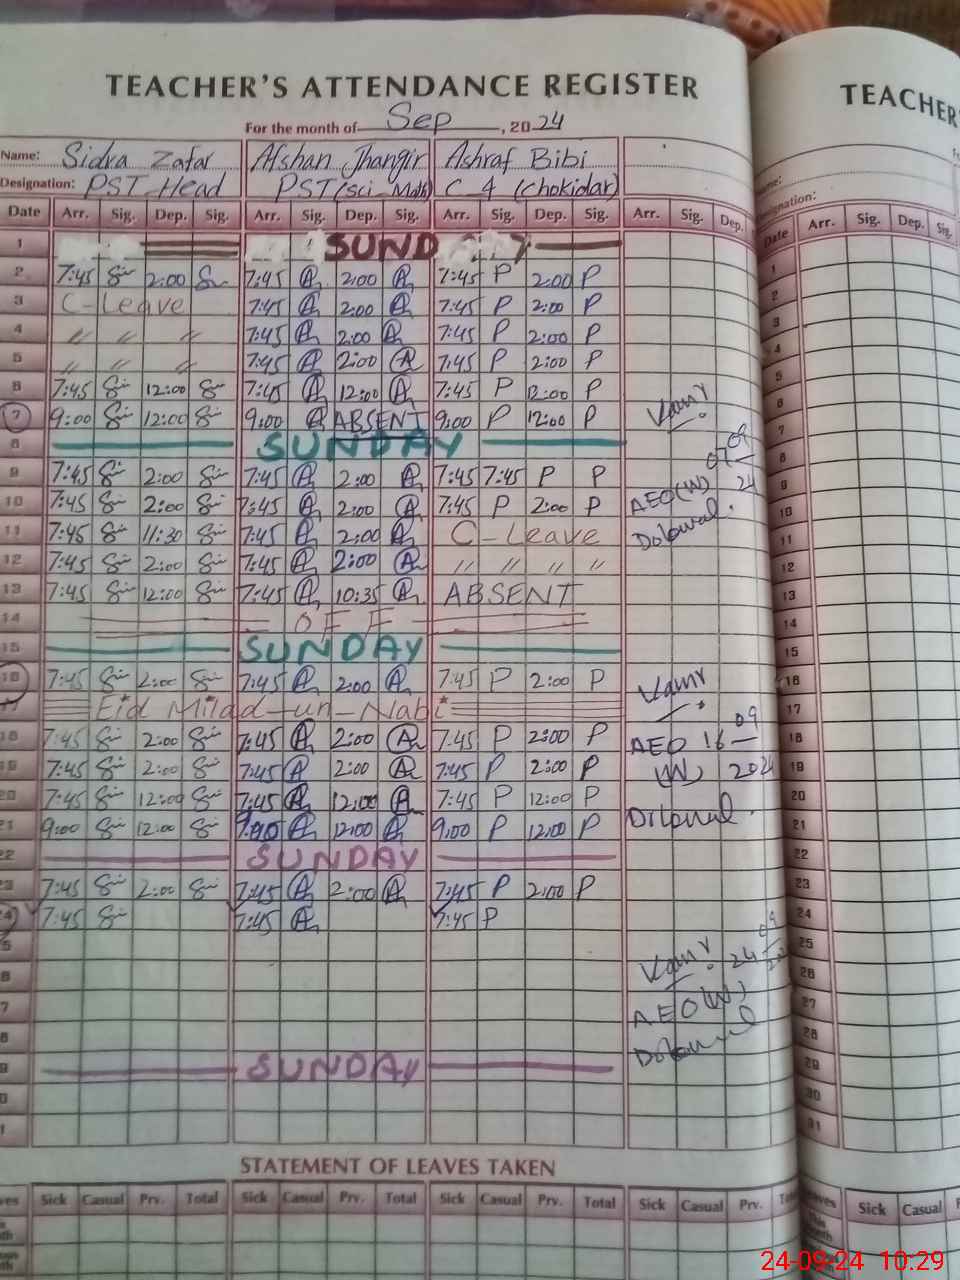 TEACHER'S ATTENDANCE REGISTER
For the month of Sep, 2024
Name: Sidra Zafar Afshan Jhangir Ashraf Bibi
Designation: PST Head PST (Sci Math) C_4 (Chokidar)
Date Arr. Sig. Dep. Sig. Arr. Sig. Dep. Sig. Arr. Sig. Dep. Sig. Arr. Sig. Dep.
1 SUNDAY
2 7:45 2:00 7:45 2:00 7:45 P 2:00 P
3 C-Leave 7:45 2:00 7:45 P 2:00 P
4 " " " 7:45 2:00 7:45 P 2:00 P
5 " " " 7:45 2:00 7:45 P 2:00 P
6 7:45 12:00 7:45 12:00 7:45 P 12:00 P
7 9:00 12:00 9:00 ABSENT 9:00 P 12:00 P
8 SUNDAY
07 09 24
9 7:45 2:00 7:45 2:00 7:45 7:45 P P
10 7:45 2:00 7:45 2:00 7:45 P 2:00 P AEO(W)
11 7:45 11:30 7:45 2:00 C-Leave
12 7:45 2:00 7:45 2:00 " " " "
13 7:45 12:00 7:45 10:35 ABSENT
14 OFF
15 SUNDAY
16 7:45 2:00 7:45 2:00 7:45 P 2:00 P
17 Eid Milad-un-Nabi
18 7:45 2:00 7:45 2:00 7:45 P 2:00 P AEO 16 09
19 7:45 2:00 7:45 2:00 7:45 P 2:00 P (W) 2024
20 7:45 12:00 7:45 12:00 7:45 P 12:00 P
21 9:00 12:00 9:00 12:00 9:00 P 12:00 P
22 SUNDAY
23 7:45 2:00 7:45 2:00 7:45 P 2:00 P
24 7:45 7:45 7:45 P
5
6 24 09
7 AEO(W)
8
9 SUNDAY
0
1
STATEMENT OF LEAVES TAKEN
Sick Casual Prv. Total Sick Casual Prv. Total Sick Casual Prv. Total Sick Casual Prv.
TEACHER'
Date Arr. Sig. Dep. Sig.
1
2
3
4
5
6
7
8
9
10
11
12
13
14
15
16
17
18
19
20
21
22
23
24
25
26
27
28
29
30
31
Leaves Sick Casual
24-09-24 10:29